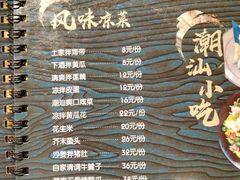 风味凉菜
土家拌海带 8元/份
下酒拌黄瓜 8元/份
清爽拌莲藕 12元/份
凉拌皮蛋 12元/份
潮汕爽口咸菜 16元/份
凉拌黄瓜花 22元/份
花生米 20元/份
芥末鱼头 26元/份
沙姜拌猪肚 32元/份
自家清调牛腱子 36元/份
38元/份
潮汕小吃